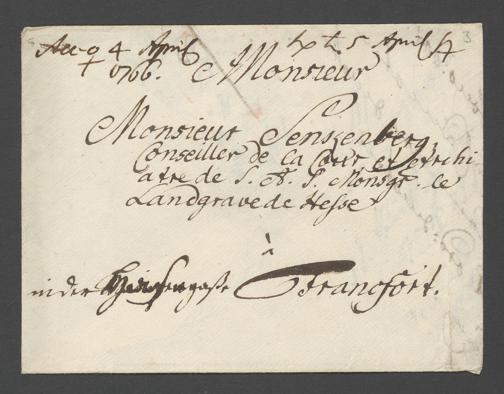 4 April 5 April
1766. Monsieur
Monsieur Senckenberg,
Conseiller de la Cour et Archi
atre de S. A. S. Monsgr. le
Landgrave de Hesse
à
in der gaße Francfort.
3